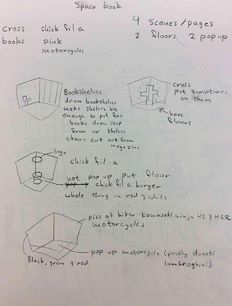 Space book
cross chick fil a
books pink
motorcycles
4 scenes/pages
2 floors, 2 pop up
Bookshelves
draw bookshelves
make shelves big
enough to put fun
books draw
chairs cut out from
magazine
cross
put scriptures
on them
have
flowers
logo
chick fil-a
not pop up put floor
chick fil a burger
whole thing in red & white
pics of biker kawasaki ninja H2 & H2R
motorcycles
pop up motorcycle (prefly ducati
lamborghini)
Black, green & red